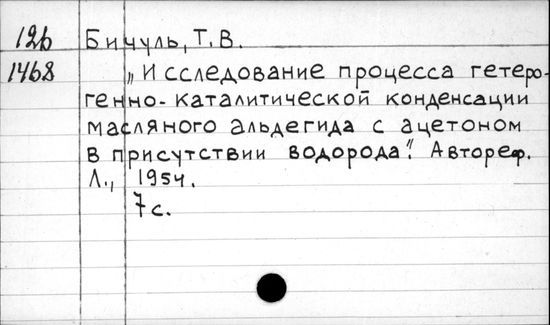 12б Бичуль, Т. В.
1468 „Исследование процесса гетеро-
генно-каталитической конденсации
масляного альдегида с ацетоном
в присутствии водорода". Автореф.
Л., 1954.
7 с.